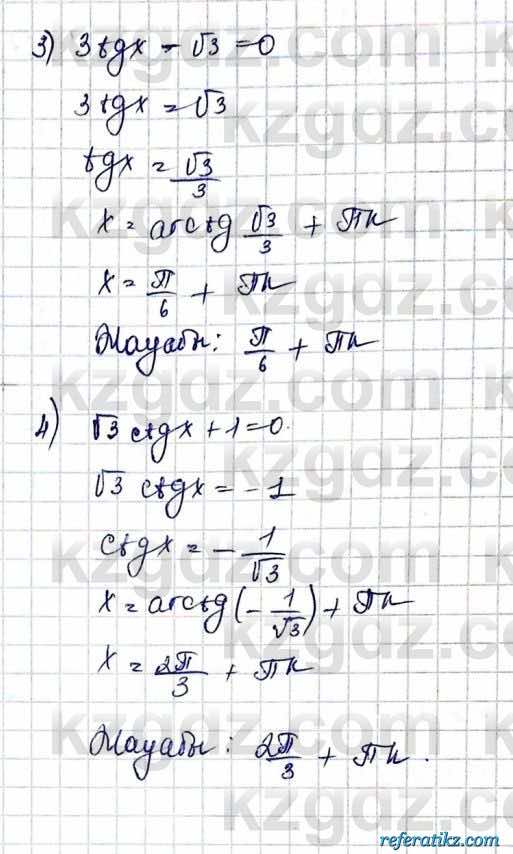 3) 3tgx - √3 = 0
3tgx = √3
tgx = √3/3
x = arctg √3/3 + πn
x = π/6 + πn
Жауабы: π/6 + πn
4) √3 ctgx + 1 = 0.
√3 ctgx = -1
ctgx = - 1/√3
x = arcctg(- 1/√3) + πn
x = 2π/3 + πn
Жауабы: 2π/3 + πn.
kzgdz.com
referatikz.com